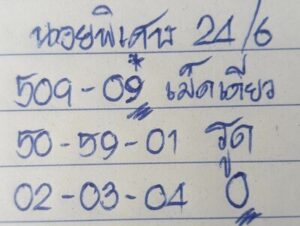 ฮานอยพิเศษ 24/6
509-09* เม็ดเดียว
50-59-01 รูด
02-03-04 0